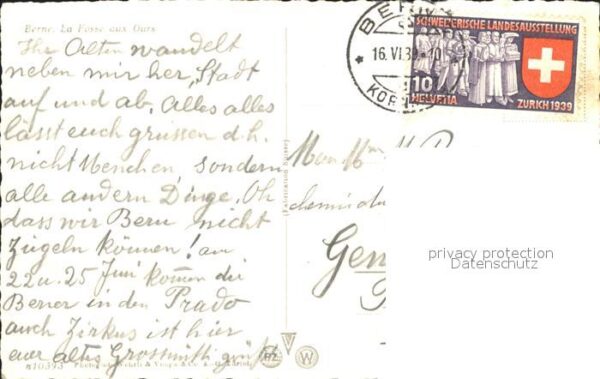 Berne. La Fosse aux Ours
Ihr Alten wandelt
neben mir her, Stadt
auf und ab. Alles alles
lässt euch grüssen d.h.
nicht Menschen, sondern
alle andern Dinge. Oh
dass wir Bern nicht
zügeln können! am
22 u. 25 Juni kommen die
Berner in den Prado
auch Zirkus ist hier
euer altes Grossmütti grüsst
BERN
16.VI.39
SCHWEIZERISCHE LANDESAUSSTELLUNG
10
HELVETIA
ZURICH 1939
Gen
privacy protection
Datenschutz
n10393
W